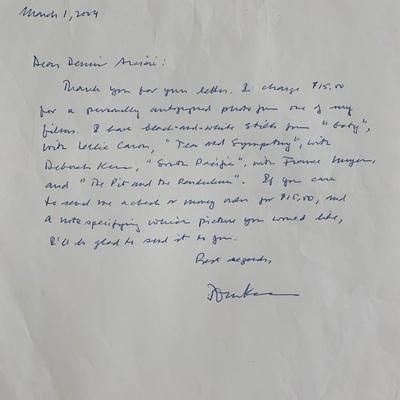 March 1, 2004
Dear Denis
Thank you for your letter. I charge $15.00
for a personally autographed photo from one of my
films. I have black-and-white stills from "Gaby",
with Leslie Caron, "Tea and Sympathy", with
Deborah Kerr, "South Pacific", with France Nuyen,
and "The Pit and the Pendulum". If you care
to send me a check or money order for $15.00, and
a note specifying which picture you would like,
I'll be glad to send it to you.
Best regards,